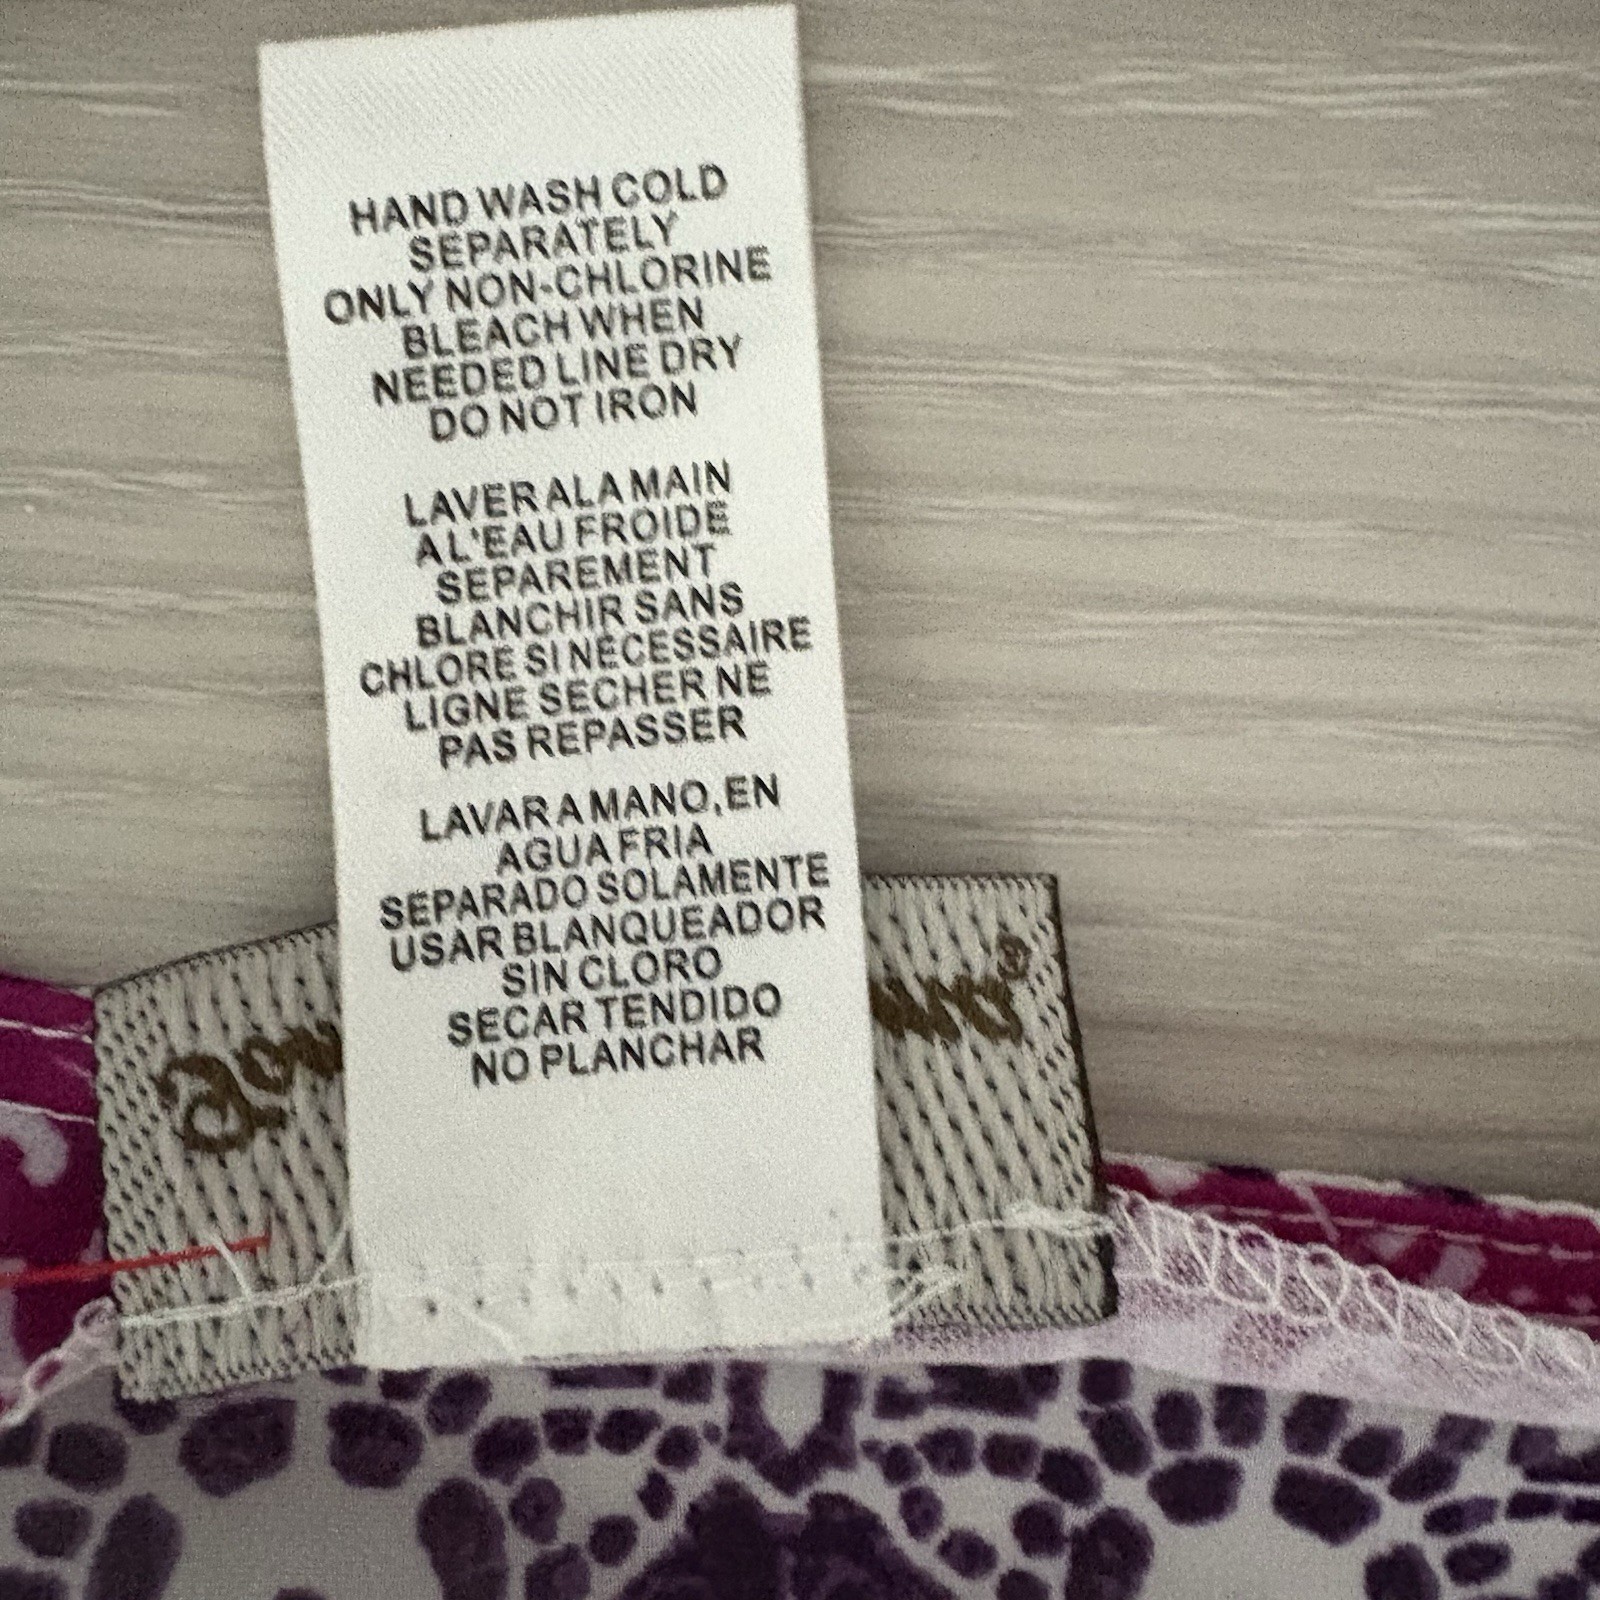 HAND WASH COLD
SEPARATELY
ONLY NON-CHLORINE
BLEACH WHEN
NEEDED LINE DRY
DO NOT IRON
LAVER A LA MAIN
A L'EAU FROIDE
SEPAREMENT
BLANCHIR SANS
CHLORE SI NECESSAIRE
LIGNE SECHER NE
PAS REPASSER
LAVAR A MANO, EN
AGUA FRIA
SEPARADO SOLAMENTE
USAR BLANQUEADOR
SIN CLORO
SECAR TENDIDO
NO PLANCHAR